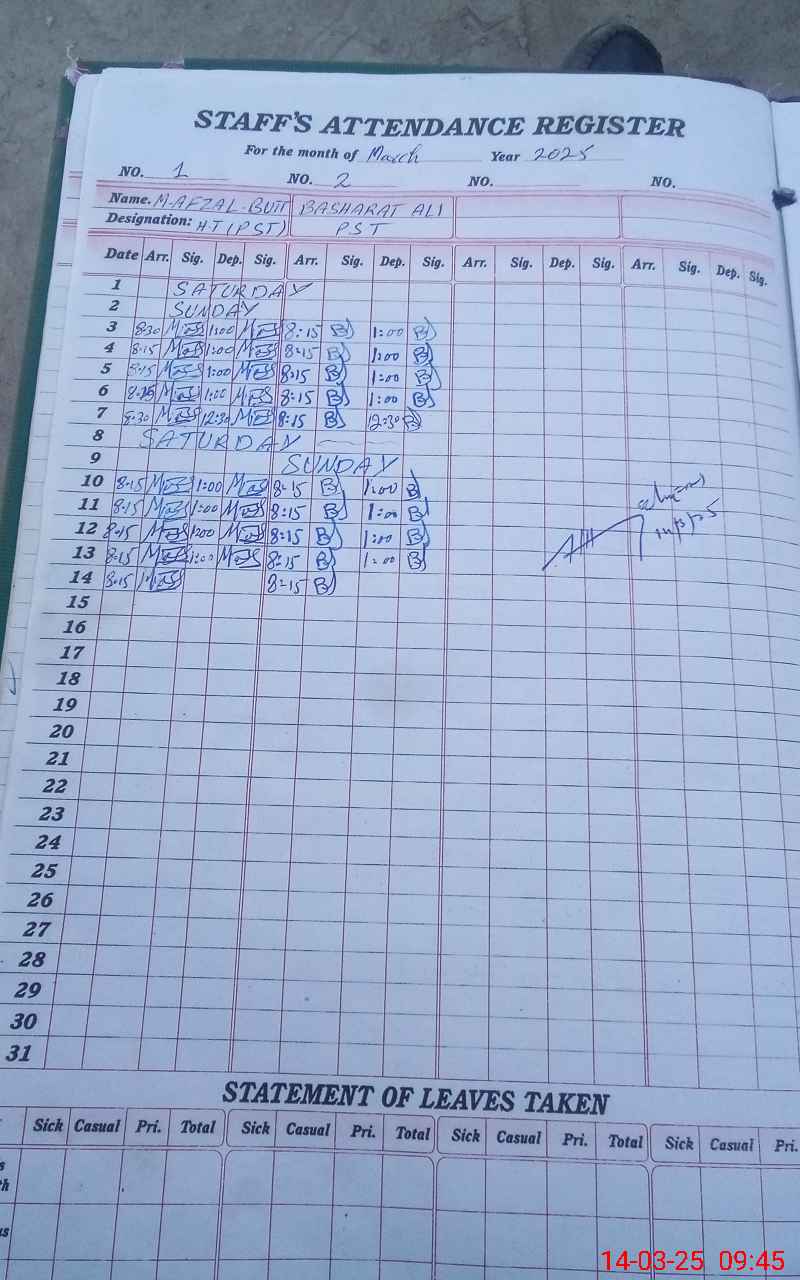 STAFF'S ATTENDANCE REGISTER
For the month of March Year 2025
NO. 1 NO. 2 NO. NO.
Name. M. AFZAL. BUTT BASHARAT ALI
Designation: H.T (PST) PST
Date Arr. Sig. Dep. Sig. Arr. Sig. Dep. Sig. Arr. Sig. Dep. Sig. Arr. Sig. Dep. Sig.
1 SATURDAY
2 SUNDAY
3 8:30 1:00 8:15 1:00
4 8:15 1:00 8:15 1:00
5 8:15 1:00 8:15 1:00
6 8:15 1:00 8:15 1:00
7 8:30 12:30 8:15 12:30
8 SATURDAY
9 SUNDAY
10 8:15 1:00 8:15 1:00
11 8:15 1:00 8:15 1:00
12 8:15 1:00 8:15 1:00
13 8:15 1:00 8:15 1:00
14 8:15 8:15
15
16
17
18
19
20
21
22
23
24
25
26
27
28
29
30
31
STATEMENT OF LEAVES TAKEN
Sick Casual Pri. Total Sick Casual Pri. Total Sick Casual Pri. Total Sick Casual Pri.
14-03-25 09:45